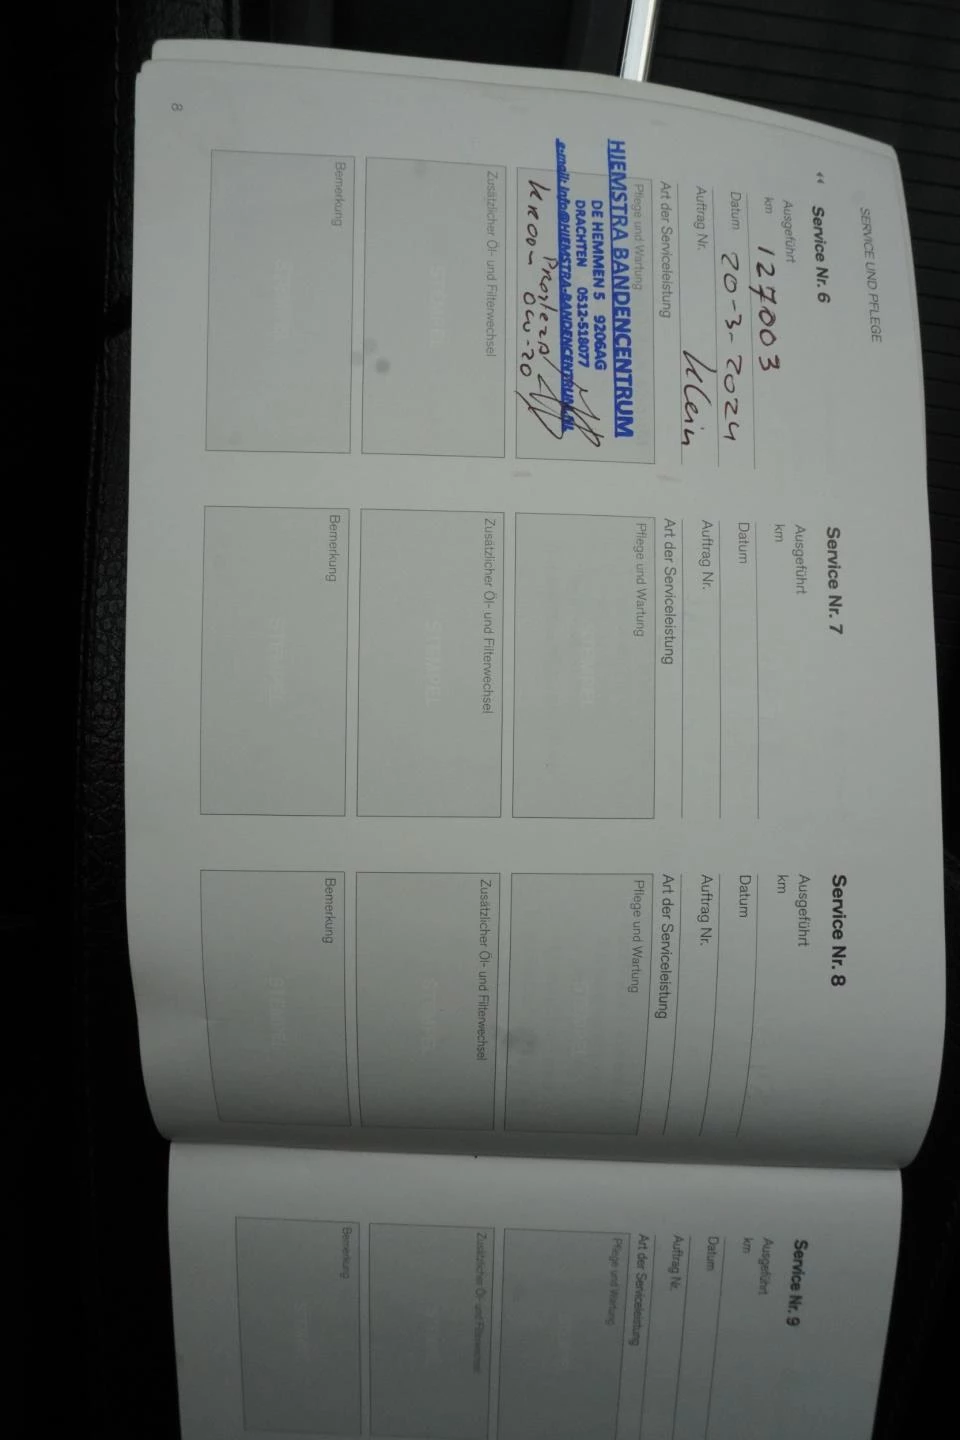 SERVICE UND PFLEGE
“
Service Nr. 6
Ausgeführt
km 127003
Datum 20-3-2024
Auftrag Nr. Klein
Art der Serviceleistung
Pflege und Wartung
HIEMSTRA BANDENCENTRUM
DE HEMMEN 5 9206AG
DRACHTEN 0512-518077
e-mail: info@HIEMSTRA-BANDENCENTRUM.NL
Kroon 0W-20
Zusätzlicher Öl- und Filterwechsel
Bemerkung
Service Nr. 7
Ausgeführt
km
Datum
Auftrag Nr.
Art der Serviceleistung
Pflege und Wartung
STEMPEL
Zusätzlicher Öl- und Filterwechsel
STEMPEL
Bemerkung
STEMPEL
Service Nr. 8
Ausgeführt
km
Datum
Auftrag Nr.
Art der Serviceleistung
Pflege und Wartung
Zusätzlicher Öl- und Filterwechsel
STEMPEL
Bemerkung
STEMPEL
8
Service Nr. 9
Ausgeführt
km
Datum
Auftrag Nr.
Art der Serviceleistung
Pflege und Wartung
Zusätzlicher Öl- und Filterwechsel
Bemerkung